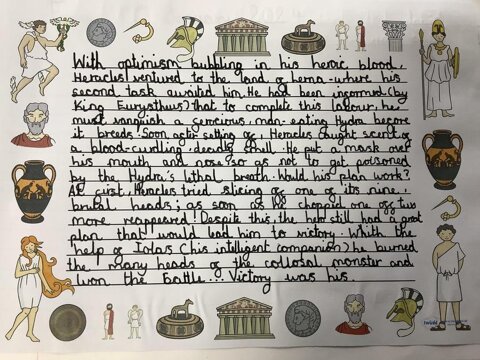 With optimism bubbling in his heroic blood,
Heracles ventured to the land of Lerna - where his
second task awaited him. He had been informed (by
King Eurystheus) that to complete this labour, he
must vanquish a ferocious, man-eating Hydra before
it breeds! Soon after setting of, Heracles caught scent of
a blood-curdling, deadly smell. He put a mask over
his mouth and nose so as not to get poisoned
by the Hydra's lethal breath. Would his plan work?
At first, Heracles tried slicing of one of its nine,
brutal heads; as soon as he chopped one off two
more reappeared! Despite this, the hero still had a great
plan that would lead him to victory. Whith the
help of Iolas (his intelligent companion) he burned
the many heads of the collosal monster and
won the battle... Victory was his.
twinkl